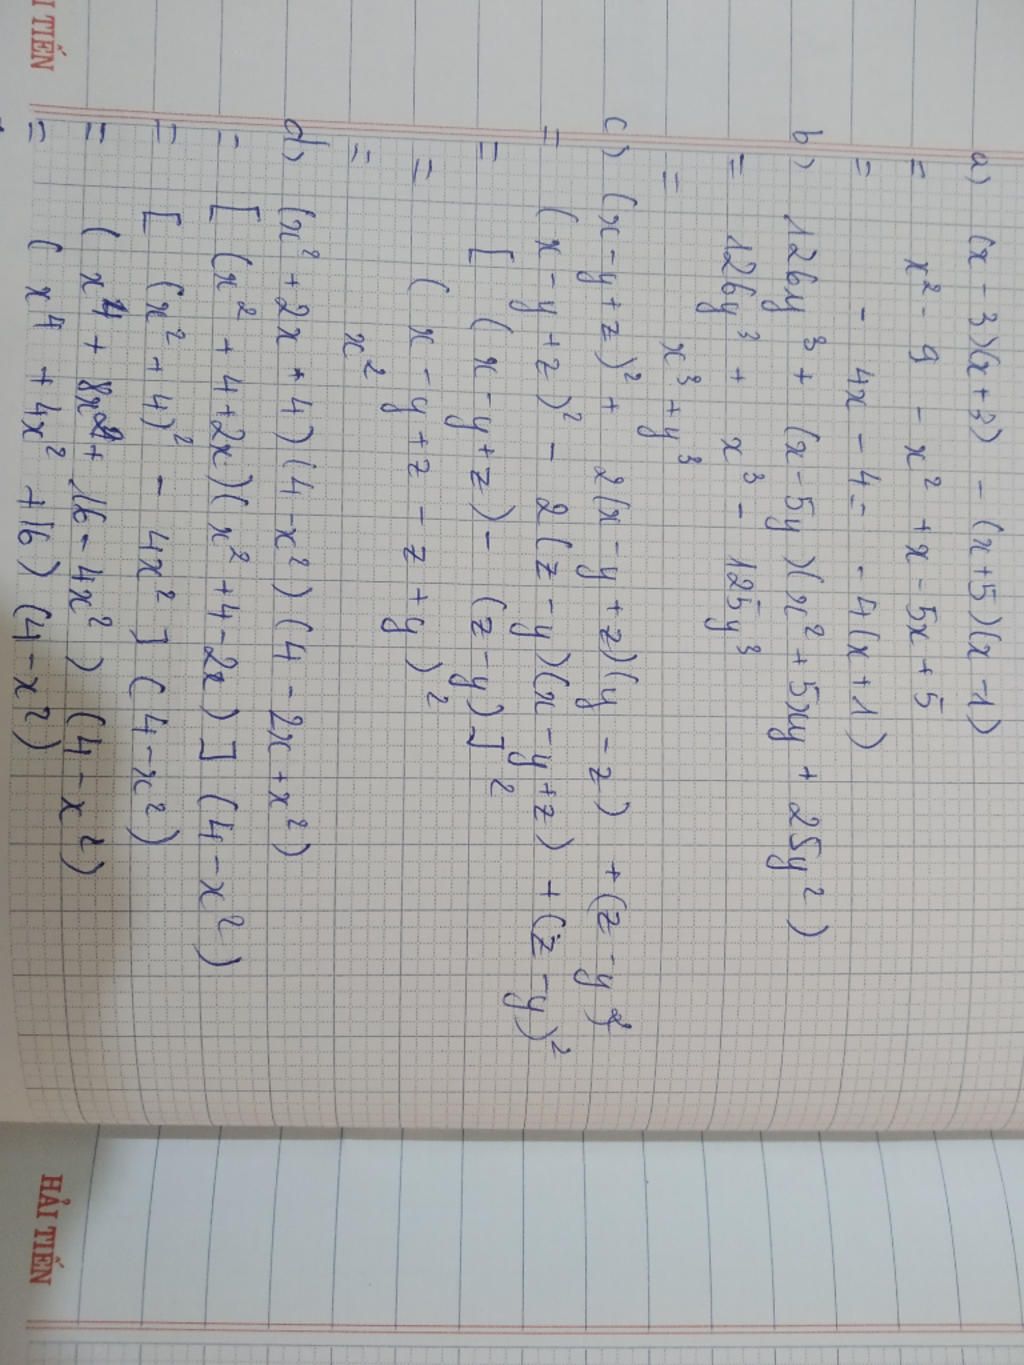 a) (x - 3)(x + 3) - (x + 5)(x - 1)
= x² - 9 - x² + x - 5x + 5
= - 4x - 4 = - 4(x + 1)
b) 126y³ + (x - 5y)(x² + 5xy + 25y²)
= 126y³ + x³ - 125y³
= x³ + y³
c) (x - y + z)² + 2(x - y + z)(y - z) + (z - y)²
= (x - y + z)² - 2(z - y)(x - y + z) + (z - y)²
= [(x - y + z) - (z - y)]²
= (x - y + z - z + y)²
= x²
d) (x² + 2x + 4)(4 - x²)(4 - 2x + x²)
= [(x² + 4 + 2x)(x² + 4 - 2x)] (4 - x²)
= [(x² + 4)² - 4x²] (4 - x²)
= (x⁴ + 8x² + 16 - 4x²) (4 - x²)
= (x⁴ + 4x² + 16) (4 - x²)
HẢI TIẾN